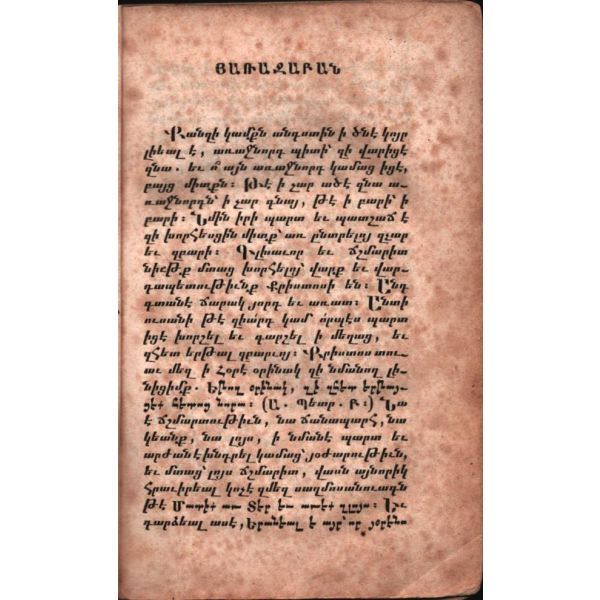 ՅԱՌԱՋԱԲԱՆ
Քանզի կամքն անդստին ի ծնէ կոյր
լիեալ է, առաջնորդ պիտի՝ զի վարիցէ
զնա. եւ ո՞ այն առաջնորդ կամաց իցէ,
բայց միտքն։ Թէ ի չար ածէ զնա ա-
ռաջնորդն՝ ի չար գնայ, թէ ի բարի՝ ի
բարի։ Ամին իրի պարտ եւ պատշաճ է
զի խորհեսցին միտք՝ առ ընտրելոյ զչար
եւ զբարի։ Գլխաւոր եւ ճշմարիտ
նիւթք մտաց խորհելոյ՝ վարք եւ վար-
դապետութիւնք Քրիստոսի են։ Անդ
գտանէ ճարակ յորդ եւ առատ։ Անտի
ուսանի թէ զիարդ կամ՝ որպէս պարտ
իցէ խորշել եւ գարշել ի մեղաց, եւ
զհետ երթալ զբարւոյ։ Քրիստոս տու-
աւ մեզ ի Հօրէ օրինակ զի նմանող լի-
նիցիմք. Եթող օրինակ, զի զհետ երթայ-
ցէք հետոց նորա։ (Ա. Պետր. Բ։) Նա
է ճշմարտութիւն, նա ճանապարհ, նա
կեանք, նա լոյս, ի նմանէ պարտ եւ
արժան է խնդրել կամաց՝ յօժարութիւն,
եւ մտաց՝ լոյս ճշմարիտ, վասն այնորիկ
Հրաւիրեալ կոչէ զմեզ սաղմոսանուագն
թէ Մատիք առ Տէր եւ առէք զլոյս։ Եւ
դարձեալ ասէ, Երանեալ է այր՝ որ յօրէնս